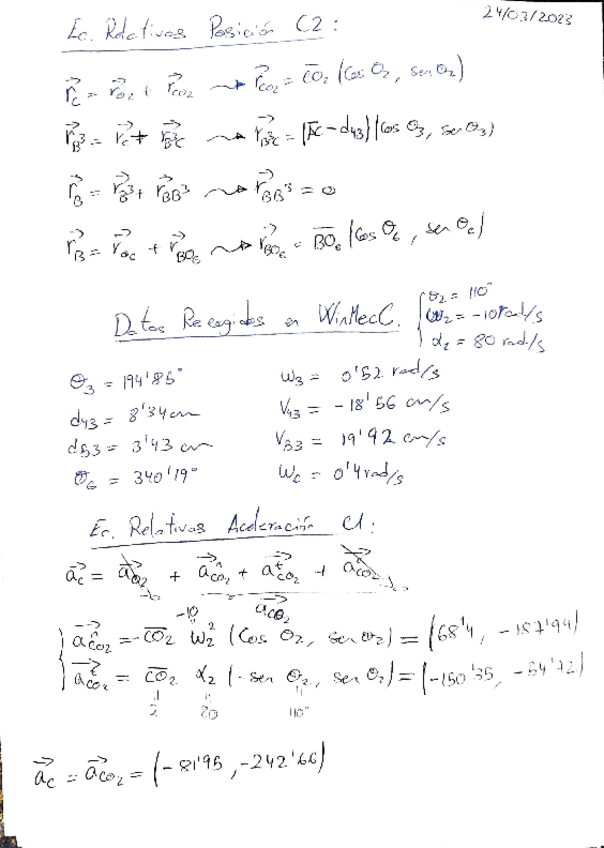 24/03/2023
Ec. Relativas Posición C2:
r⃗_C = r⃗_O2 + r⃗_CO2 ⟿ r⃗_CO2 = C̅O̅₂ (Cos θ₂, sen θ₂)
r⃗_B³ = r⃗_C + r⃗_B³C ⟿ r⃗_B³C = (A̅C̅ - d43) (Cos θ₃, sen θ₃)
r⃗_B = r⃗_B³ + r⃗_BB³ ⟿ r⃗_BB³ = 0
r⃗_B = r⃗_O6 + r⃗_BO6 ⟿ r⃗_BO6 = B̅O̅₆ (Cos θ₆, sen θ₆)
Datos Recogidos en WinMecC. { θ₂ = 110°
ω₂ = -10 rad/s
α₂ = 80 rad/s
θ₃ = 194'85° ω₃ = 0'52 rad/s
d43 = 8'34 cm V43 = -18'56 cm/s
dB3 = 3'43 cm VB3 = 19'92 cm/s
θ₆ = 340'19° ω₆ = 0'4 rad/s
Ec. Relativas Aceleración C1:
a⃗_C = a⃗_O2 + a⃗ⁿ_CO2 + a⃗ᵗ_CO2 + a⃗ᶜ_CO2
0 a⃗_CO2
-10
a⃗ⁿ_CO2 = -C̅O̅₂ ω₂² (Cos θ₂, sen θ₂) = (68'4, -187'94)
a⃗ᵗ_CO2 = C̅O̅₂ α₂ (-sen θ₂, sen θ₂) = (-150'35, -54'72)
2 80 110°
a⃗_C = a⃗_CO2 = (-81'95, -242'66)